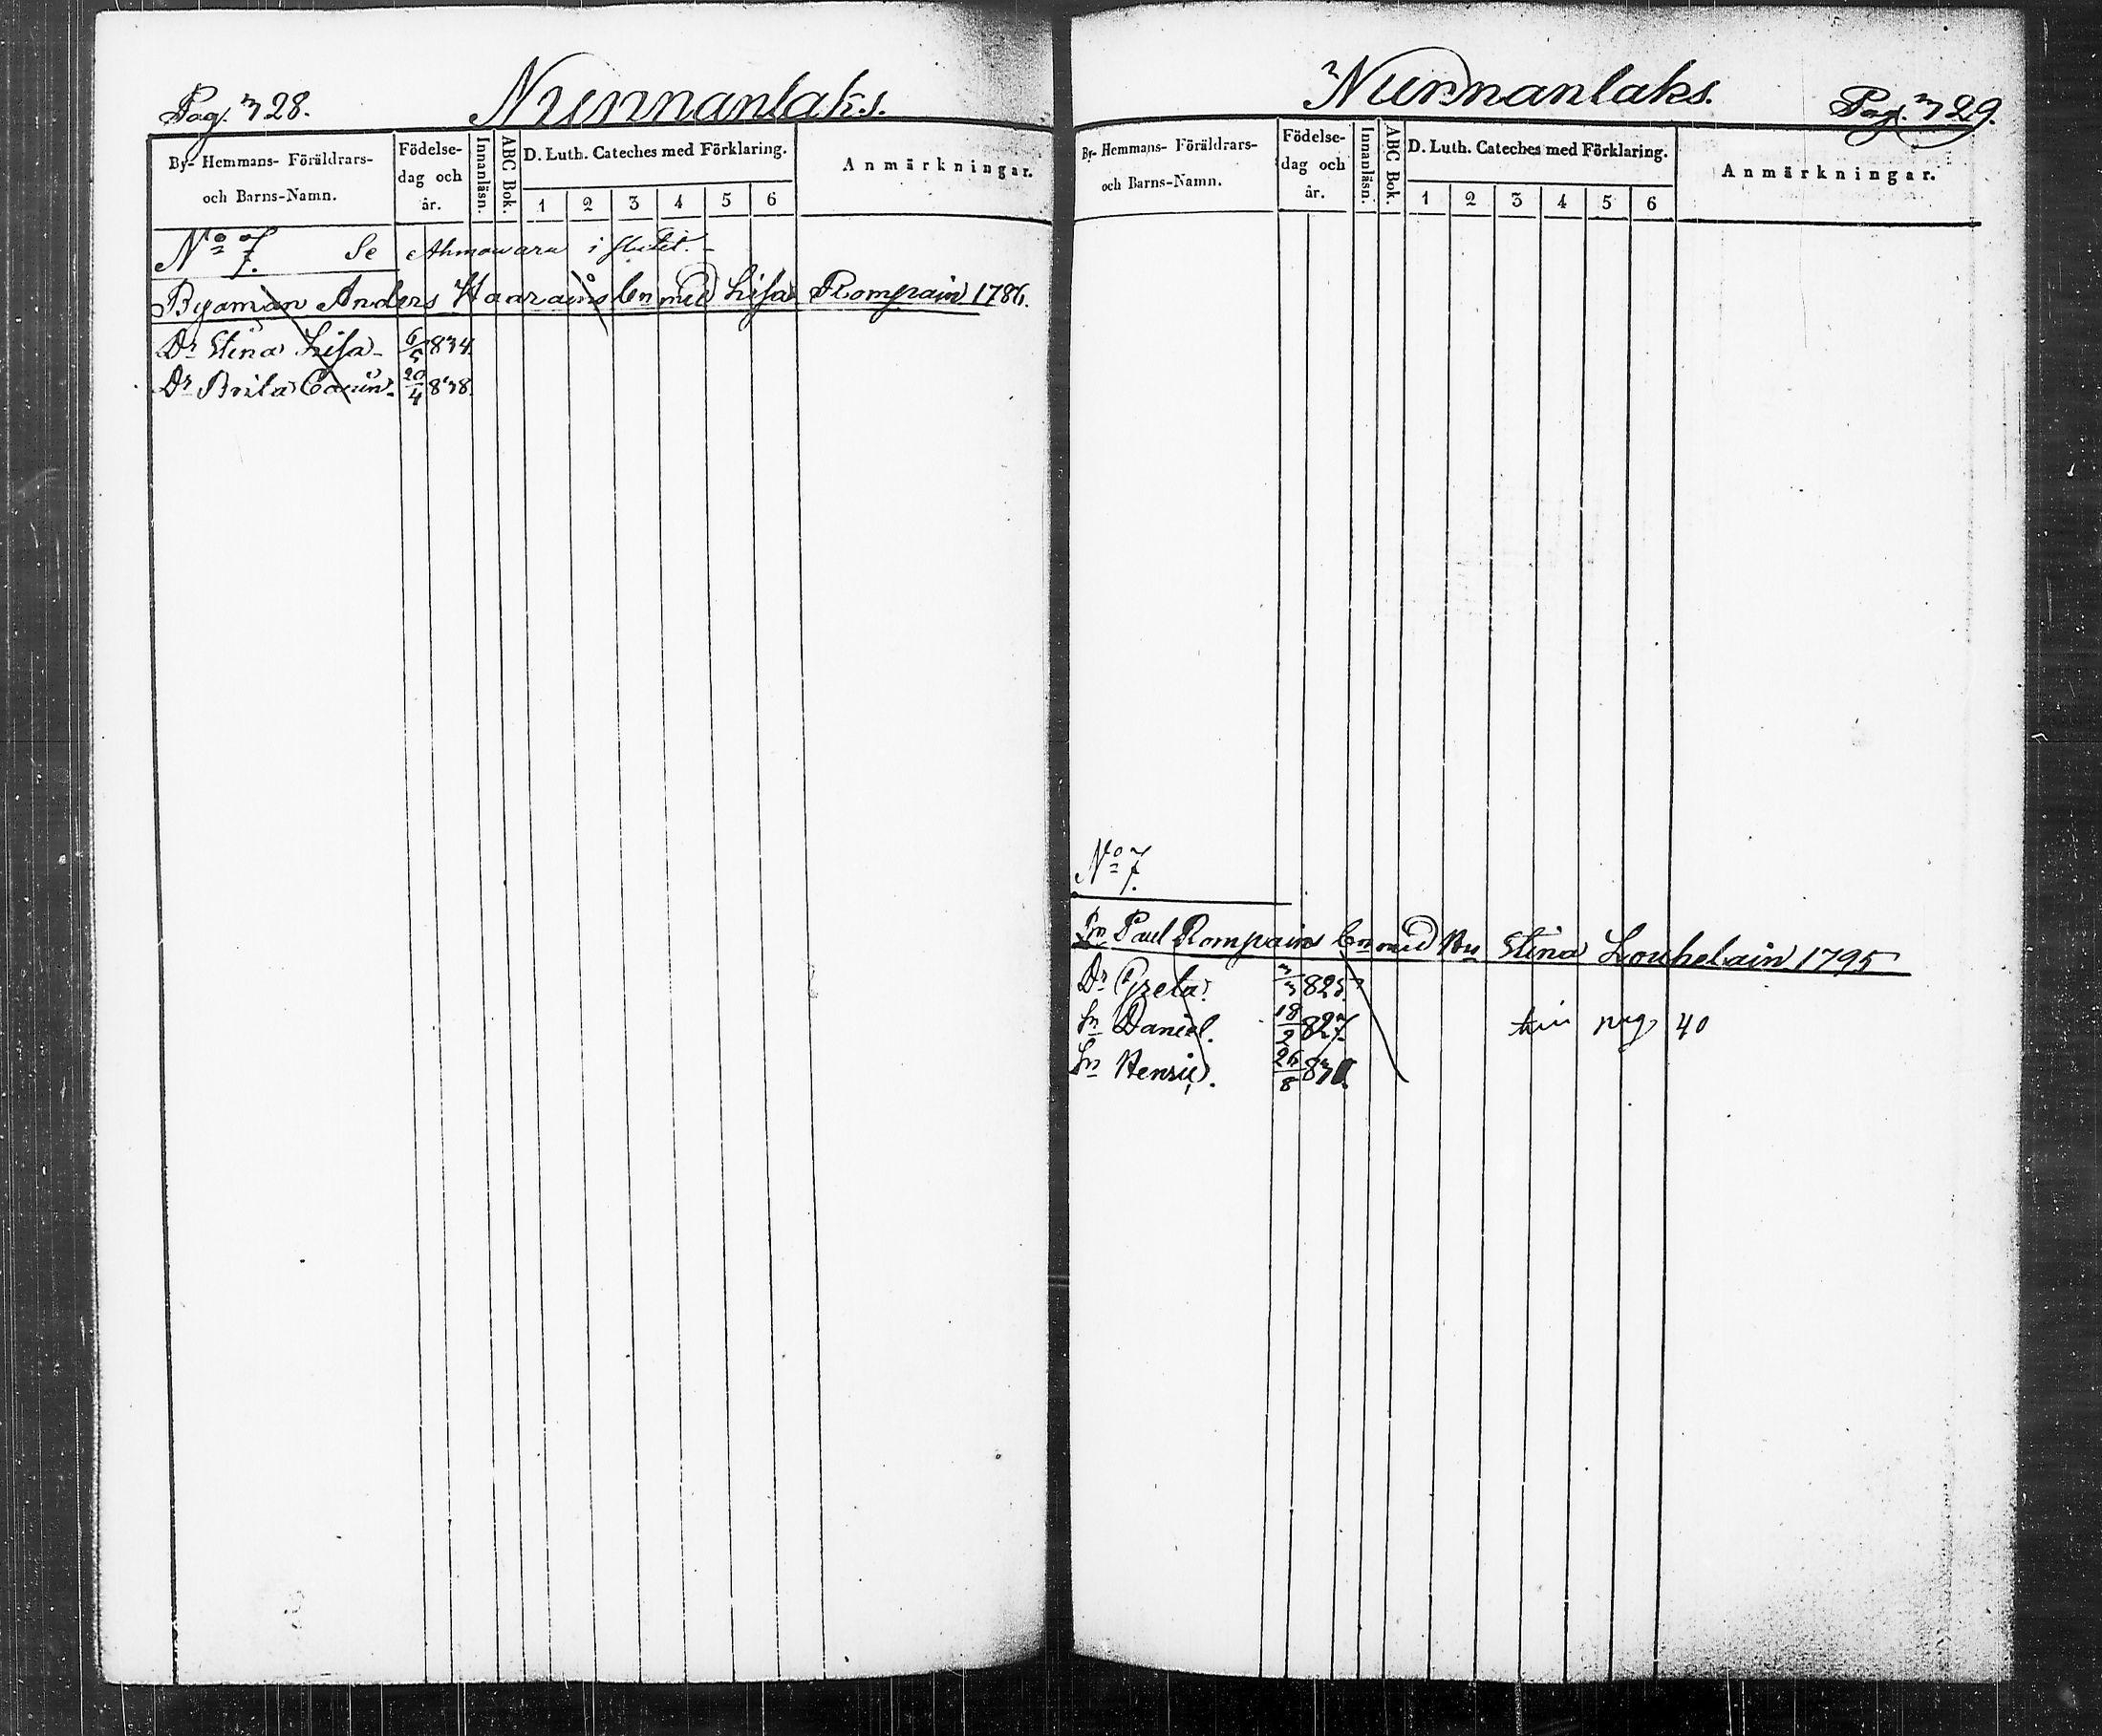 Pag. 328.
Nurmanlaks.
By- Hemmans- Föräldrars- och Barns-Namn.
Födelse- dag och år.
Innanläsn.
ABC Bok.
D. Luth. Cateches med Förklaring.
1 2 3 4 5 6
Anmärkningar.
No 7. Se Ahmowara i slutet.
Byaman Anders Haarains Enmed Lisa Rompain 1786.
Dr Stina Lisa 6/5 834.
Dr Brita Carin 20/4 838.
Nurmanlaks.
Pag. 329.
By- Hemmans- Föräldrars- och Barns-Namn.
Födelse- dag och år.
Innanläsn.
ABC Bok.
D. Luth. Cateches med Förklaring.
1 2 3 4 5 6
Anmärkningar.
No 7.
Sn Paul Rompains Enmed Hu Stina Louhelain 1795
Dr Greta. 3/3 825.
Sn Daniel. 18/2 827. pag 40
Sn Hensic. 26/8